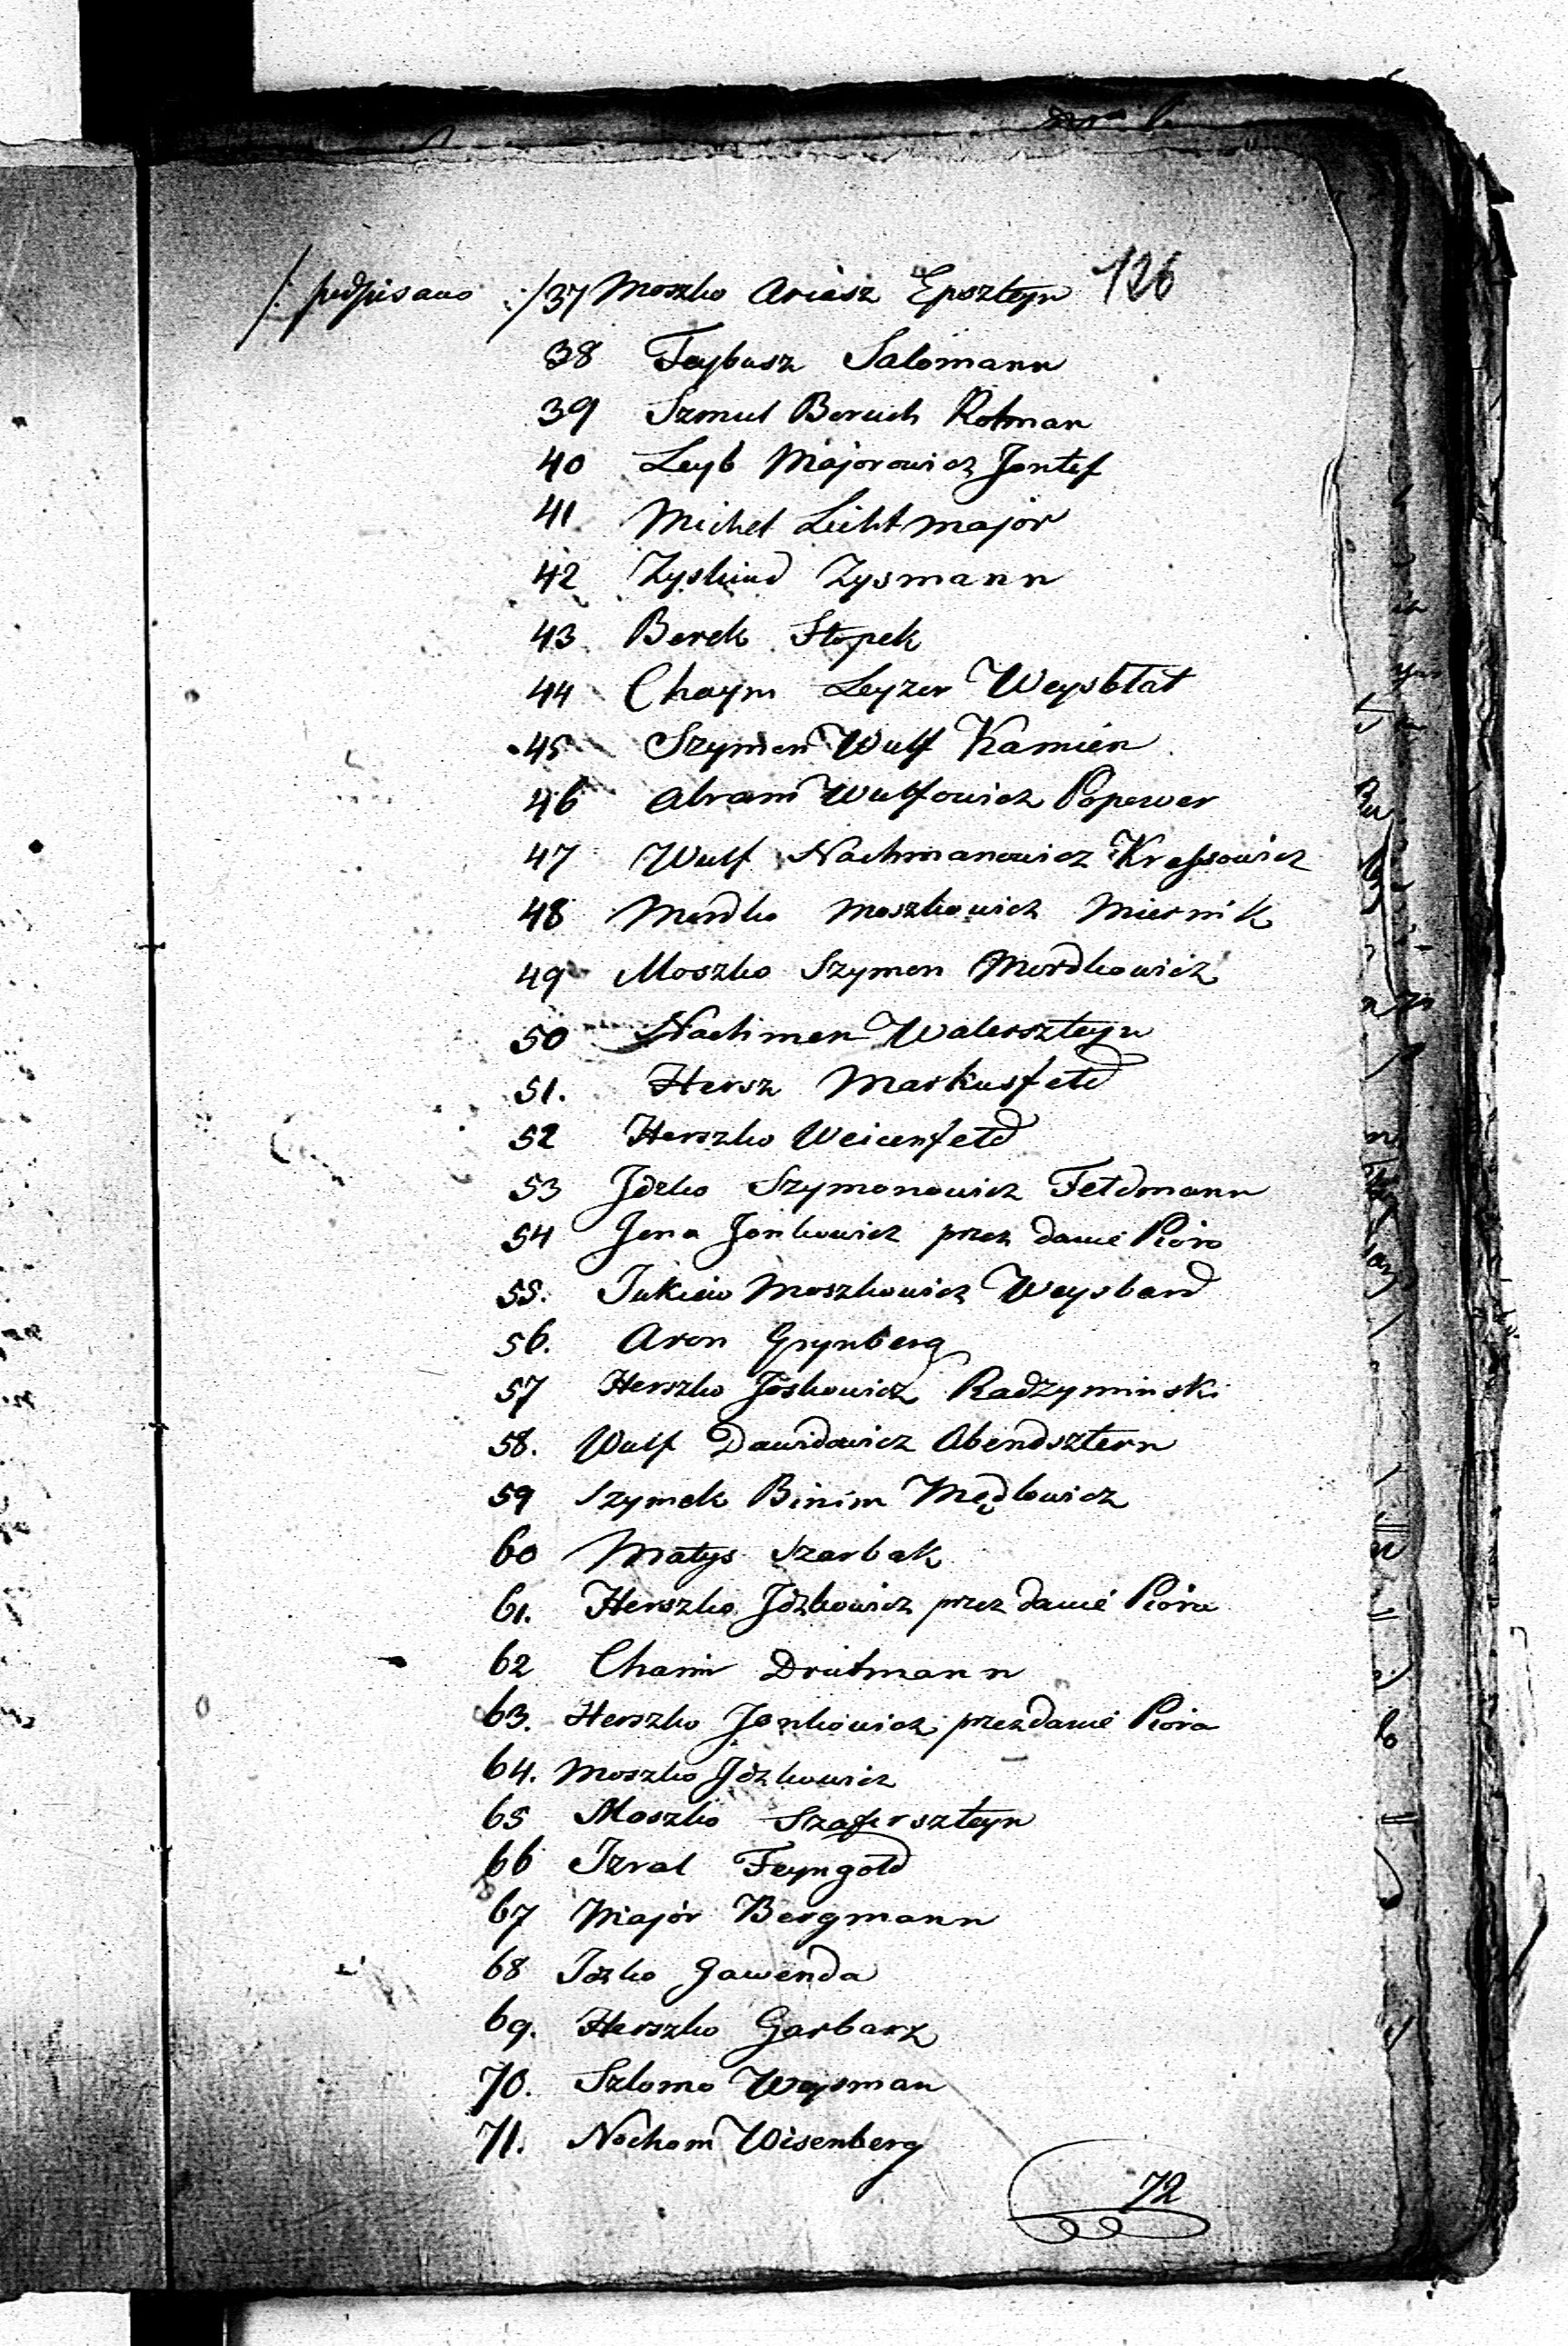 /: podpisano :/ 37 Moszko Ariasz Epszteyn 126
38 Feybusz Salomann
39 Szmul Boruch Rotman
40 Leyb Majorowicz Jontef
41 Michel Lichtmajor
42 Zyskind Zysmann
43. Berek Stopek
44 Chaym Leyzer Weysblat
45 Szymon Wulf Kamien
46 Abram Wulfowicz Popower
47 Wulf Nachmanowicz Krassowicz
48 Mordko Moszkowicz Miernik
49 Moszko Szymon Mordkowicz
50 Nachmen Walerszteyn
51. Hersz Markusfeld
52 Herszko Weicenfeld
53 Jdzko Szymonowicz Feldmann
54 Jona Jonkowicz przez danie Pióro
55. Jukiew Moszkowicz Weysbard
56. Aron Grynberg
57 Herszko Joskowicz Radzyminski
58. Wulf Dawidowicz Abendsztern
59 Szymek Binim Mędlowicz
60 Matys Szarbak
61. Herszko Jdzkowicz przez danie Pióra
62 Chaim Drutmann
63. Herszko Jonkowicz przez danie Pióra
64. Moszko Jdzkowicz
65 Moszko Szaferszteyn
66 Izral Feyngold
67 Majór Bergmann
68 Idzko Gawenda
69. Herszko Garbarz
70. Szlomo Weysman
71. Nochom Wisenberg
72